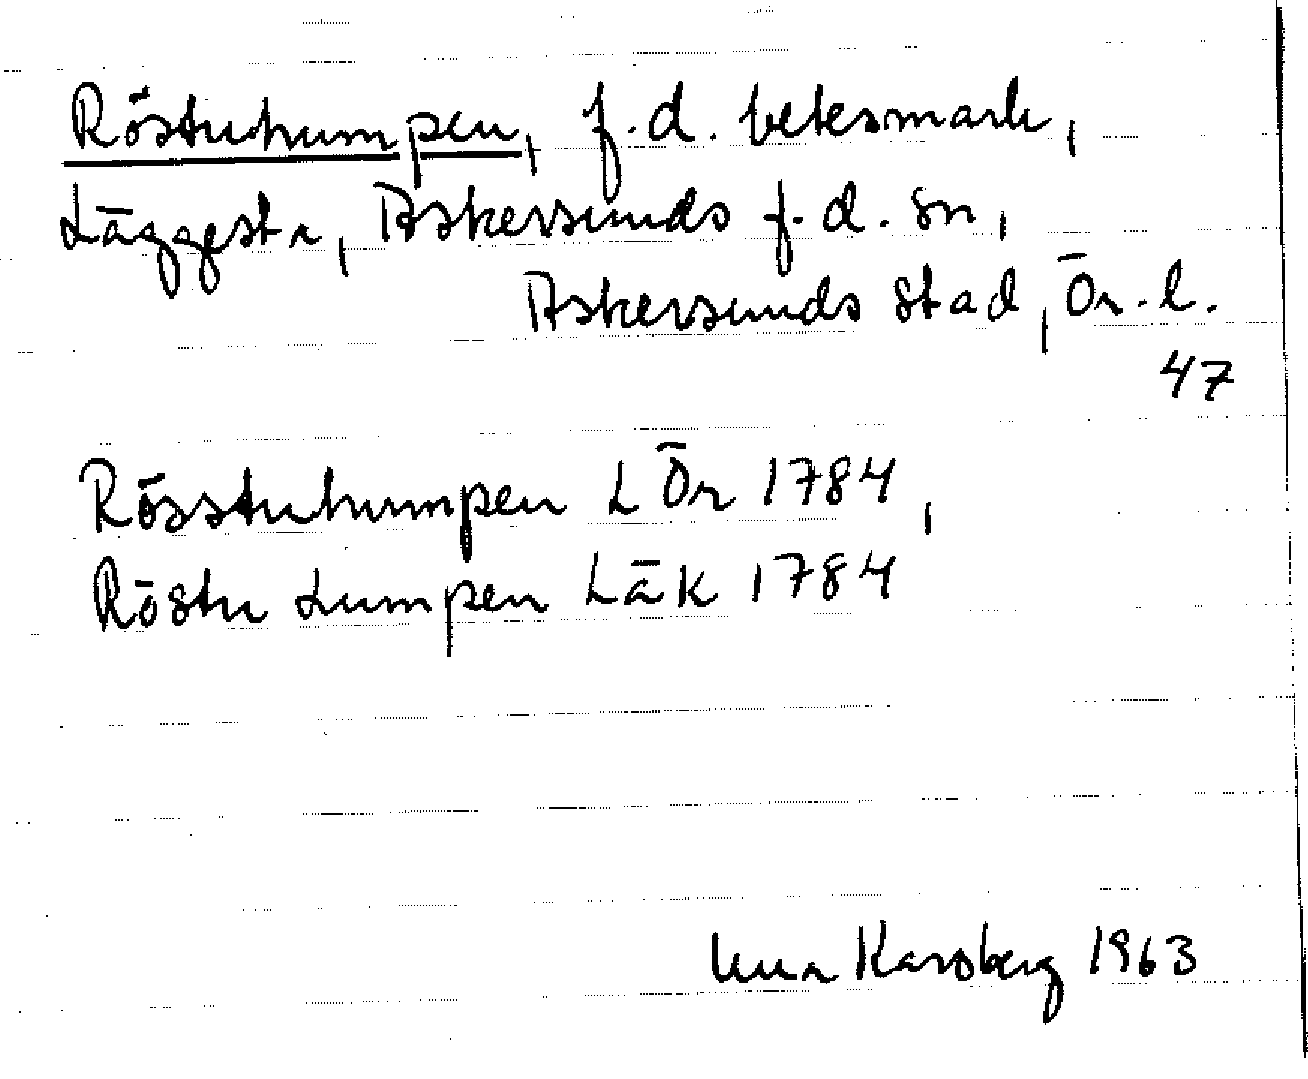 Röstuhumpen, f.d. betesmark,
Läggesta, Askersunds f.d. sn,
Askersunds stad, Ör. l.
47
Rösstuhumpen L Ör 1784,
Röstu Lumpen LäK 1784
Karsberg 1963